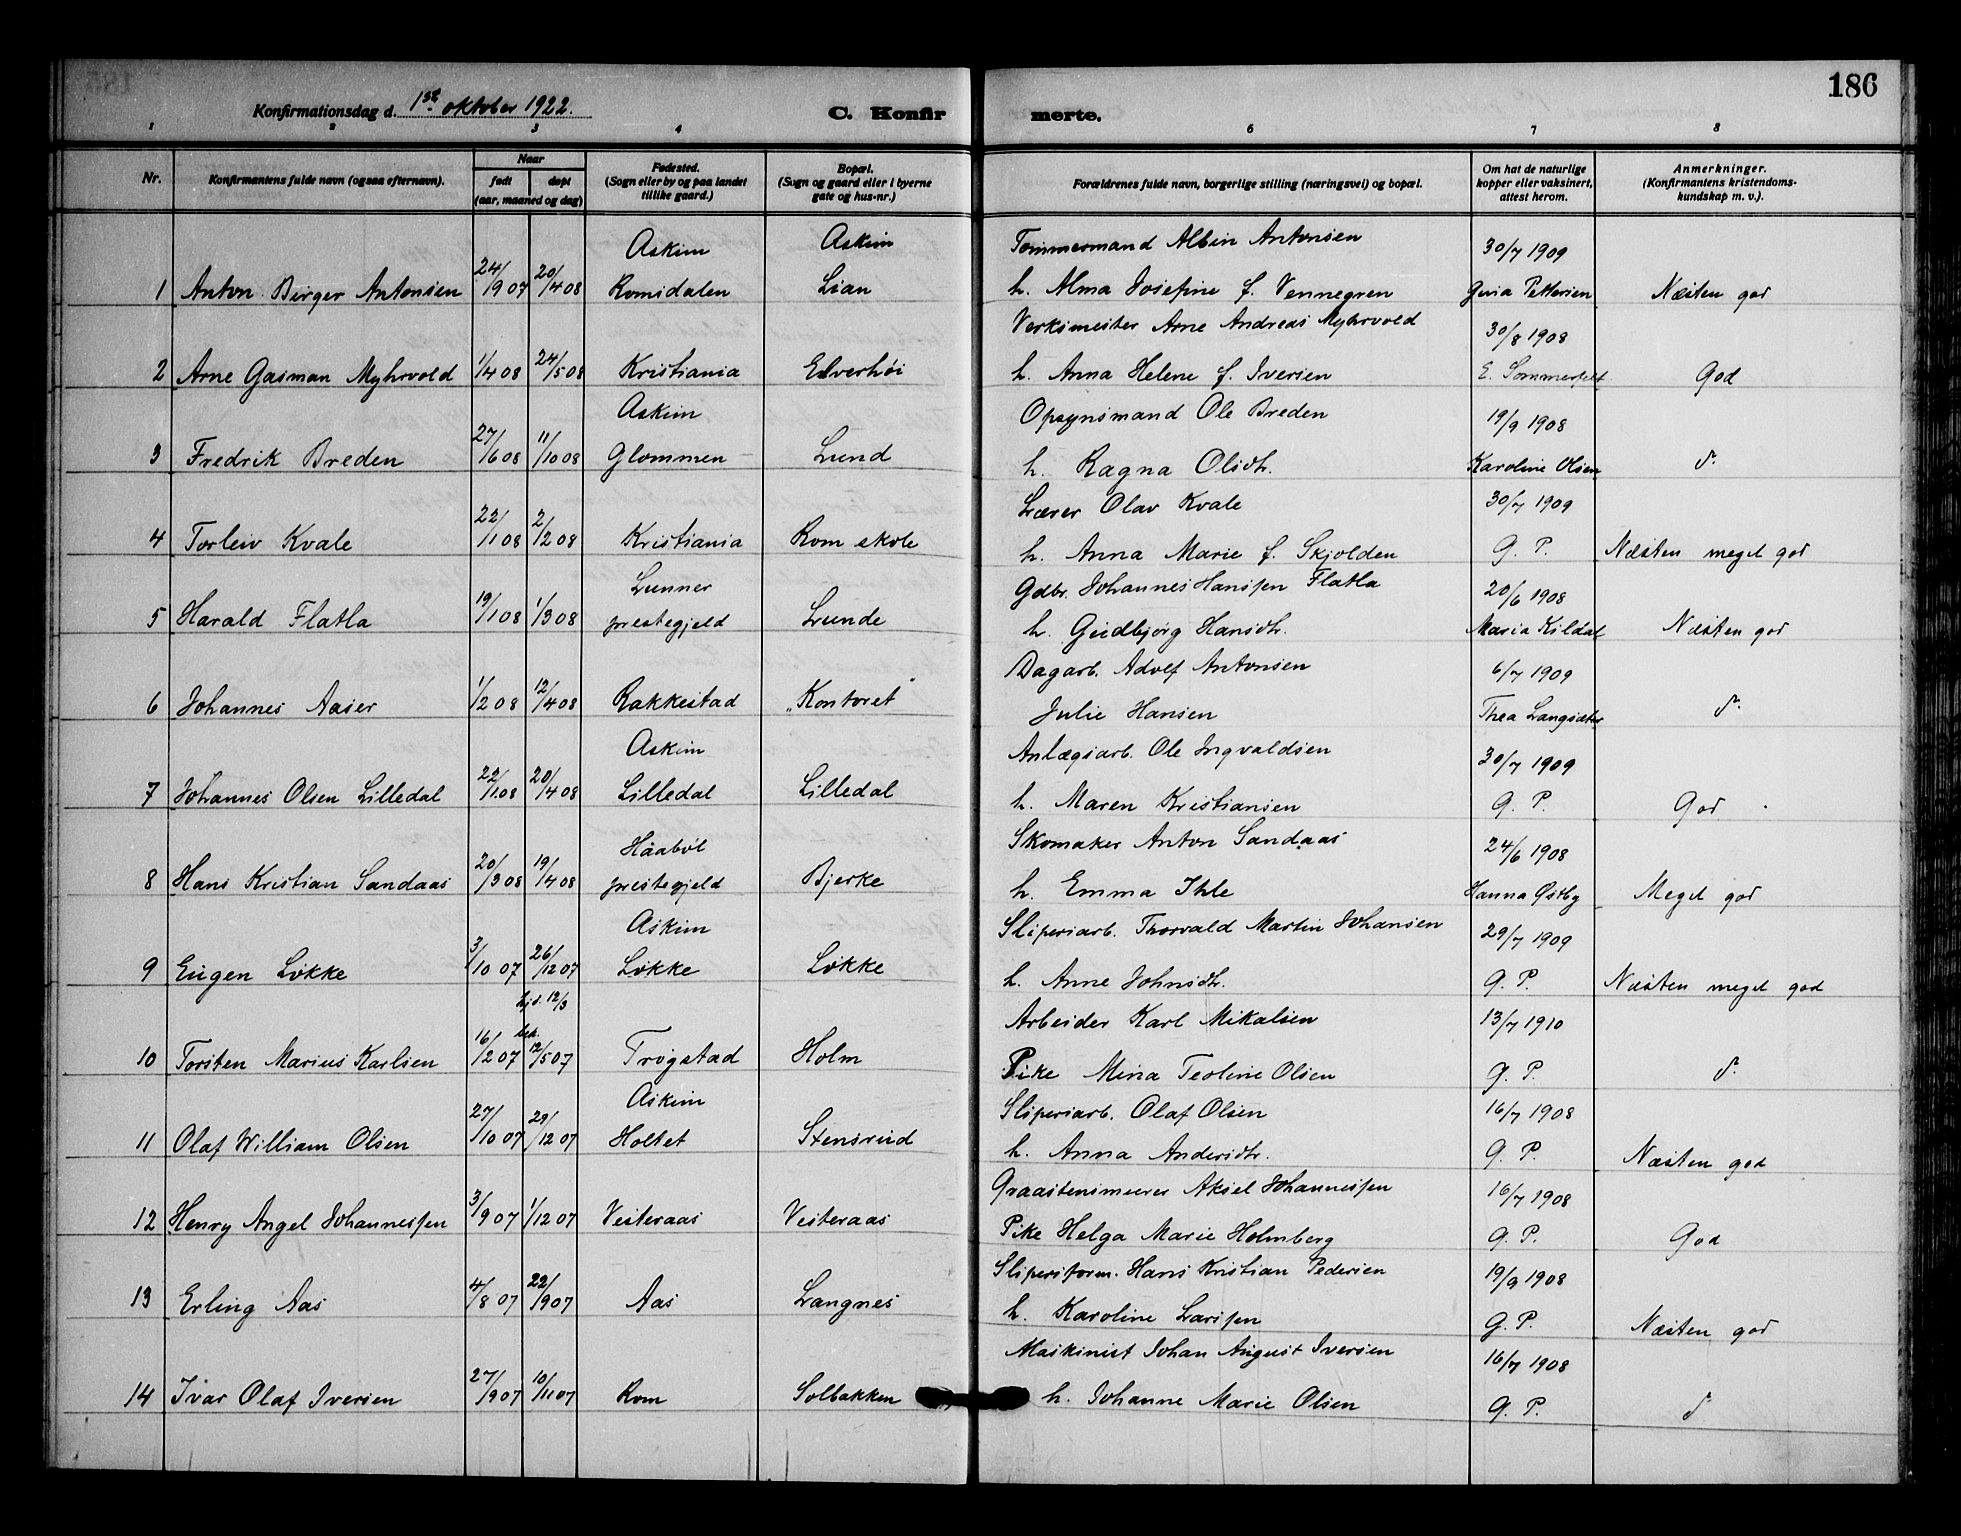 186
Konfirmationsdag d. 1ste oktober 1922.
C. Konfirmerte.
1 2 3 4 6 7 8
Nr.
Konfirmantens fulde navn (ogsaa efternavn).
Naar
født døpt
(aar, maaned og dag)
Fødested.
(Sogn eller by og paa landet
tillike gaard.)
Bopæl.
(Sogn og gaard eller i byerne
gate og hus-nr.)
Forældrenes fulde navn, borgerlige stilling (næringsvei) og bopæl.
Om hat de naturlige
kopper eller vaksinert,
attest herom.
Anmerkninger.
(Konfirmantens kristendoms-
kundskap m. v.).
Askim Askim Tømmermand Albin Antonsen 30/7 1909
1 Anton Birger Antonsen 24/9 07 20/4 08 Romsdalen Lian h. Alma Josefine f. Vennegren Gina Pettersen Næsten god
Verksmester Arne Andreas Myhrvold 30/8 1908
2 Arne Gasman Myhrvold 1/4 08 24/5 08 Kristiania Elverhøi h. Anna Helene f. Iversen E. Sommerfelt God
Askim Opsynsmand Ole Breden 19/9 1908
3 Fredrik Breden 27/6 08 11/10 08 Glommen Lund h. Ragna Olsdtr. Karoline Olsen d.
Lærer Olav Kvale 30/7 1909
4 Torleiv Kvale 22/1 08 2/2 08 Kristiania Rom skole h. Anna Marie f. Skjolden G. P. Næsten meget god
Lunner Gdbr. Johannes Hanssen Flatla 20/6 1908
5 Harald Flatla 19/1 08 1/3 08 prestegjeld Lunde h. Gudbjørg Hansdtr. Maria Kildal Næsten god
Dagarb. Adolf Antonsen 6/7 1909
6 Johannes Aaser 1/2 08 12/4 08 Rakkestad „Kontoret" Julie Hansen Thea Langsæter d.
Askim Anlægsarb. Ole Ingvaldsen 30/7 1909
7 Johannes Olsen Lilledal 22/1 08 20/4 08 Lilledal Lilledal h. Maren Kristiansen G. P. God
Haabøl Skomaker Anton Sandaas 24/6 1908
8 Hans Kristian Sandaas 20/3 08 19/4 08 prestegjeld Bjerke h. Emma Ihle Hanna Østby Meget god
Askim Sliperiarb. Thorvald Martin Johansen 29/7 1909
9 Eugen Løkke 3/10 07 26/12 07 Løkke Løkke h. Anne Johnsdtr. G. P. Næsten meget god
hjd. 12/3 Arbeider Karl Mikalsen 13/7 1910
10 Torsten Marius Karlsen 16/2 07 bek. 12/5 07 Trøgstad Holm Pike Mina Teoline Olsen G. P. d.
Askim Sliperiarb. Olaf Olsen 16/7 1908
11 Olaf William Olsen 27/10 07 29/12 07 Holtet Stensrud h. Anna Andersdtr. G. P. Næsten god
Graastensmurer Aksel Johannessen 16/7 1908
12 Henry Angel Johannessen 3/9 07 1/12 07 Vesteraas Vesteraas Pike Helga Marie Holmberg G. P. God
Sliperiform. Hans Kristian Pedersen 19/9 1908
13 Erling Aas 4/8 07 22/9 07 Aas Langnes h. Karoline Larssen G. P. Næsten god
Maskinist Johan August Iversen 16/7 1908
14 Ivar Olaf Iversen 27/9 07 10/11 07 Rom Solbakken h. Johanne Marie Olsen G. P. d